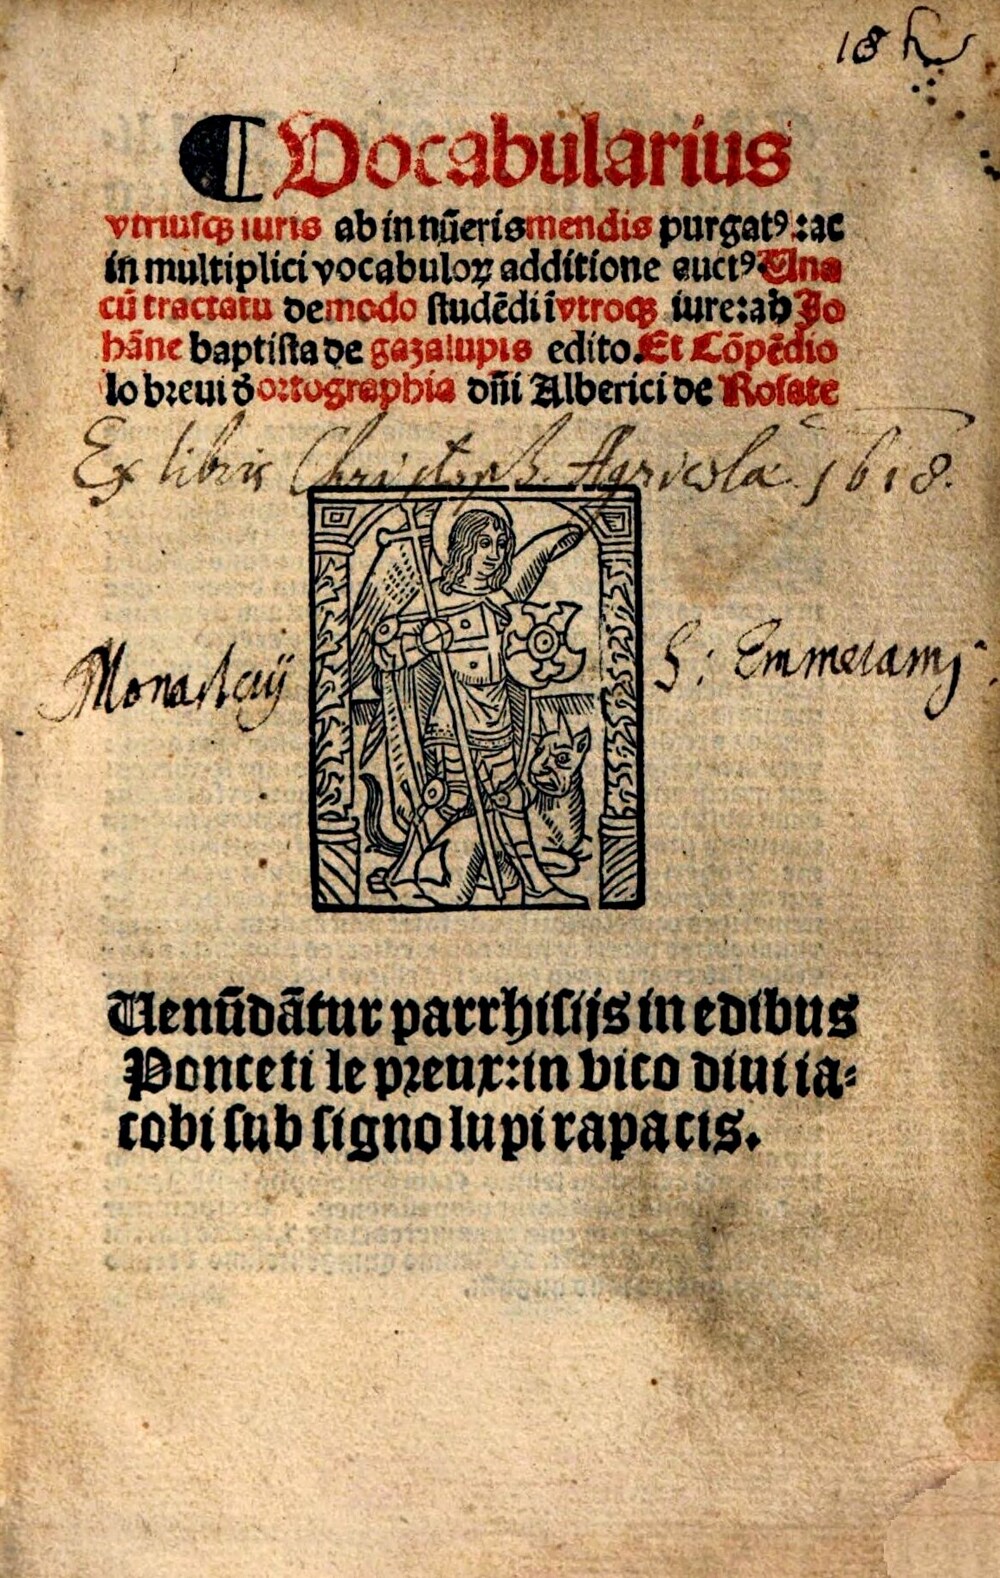 18
¶ Vocabularius
vtriusqꝫ iuris ab in nũeris mendis purgatꝰ: ac
in multiplici vocabuloꝝ additione auctꝰ. Una
cũ tractatu de modo studẽdi ĩ vtroqꝫ iure: ab Jo
hãne baptista de gazalupis edito. Et Cõpẽdio
lo breui ð ortographia dñi Alberici de Rosate
Ex libris Christoph. Agricolæ. 1618.
Monasterij S: Emmerami
Uenũdãtur parrhisijs in edibus
Ponceti le preux: in vico diui ia⸗
cobi sub signo lupi rapacis.